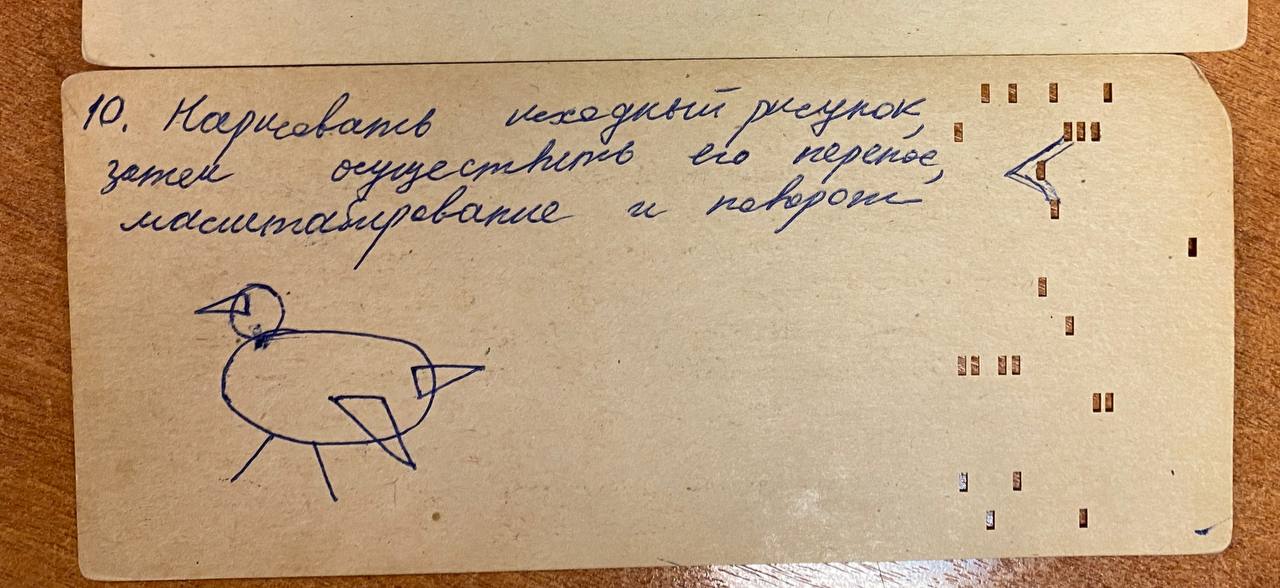 10. Нарисовать исходный рисунок,
затем осуществить его перенос,
масштабирование и поворот